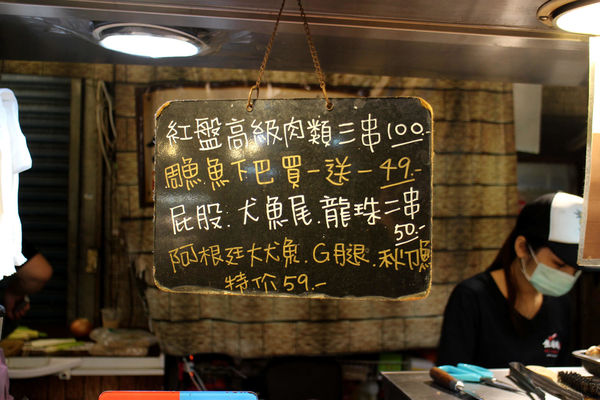 紅盤高級肉類三串100.-
鵰魚魚下巴買一送一49.-
屁股.犬魚尾.龍珠二串
50.-
阿根廷大犬魚.G腿.秋刀魚
特价59.-